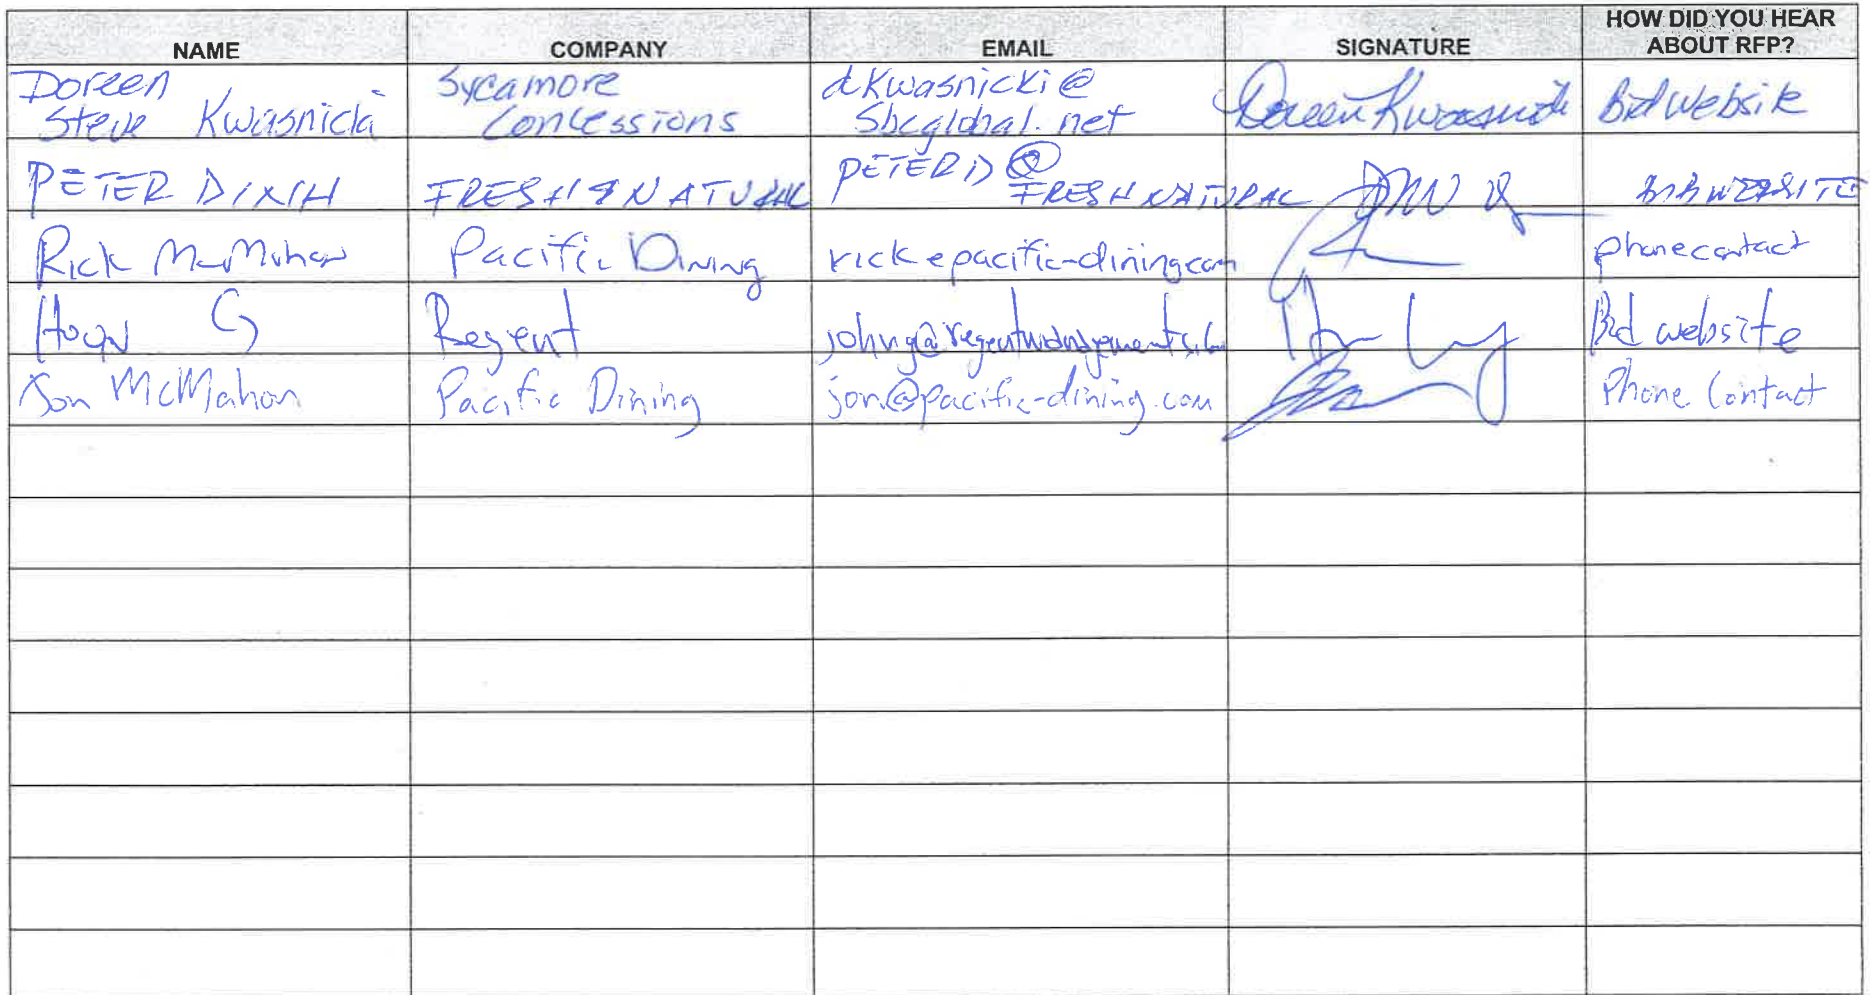 NAME COMPANY EMAIL SIGNATURE HOW DID YOU HEAR
ABOUT RFP?
Doreen Sycamore dkwasnicki@
Steve Kwasnicki Concessions Sbcglobal.net Doreen Kwasnicki Bid Website
PETER FRESH & NATURAL PETERD@
FRESHNATURAL WEBSITE
Rick McMahon Pacific Dining rick@pacific-dining.com phone contact
Regent Bid website
Jon McMahon Pacific Dining jon@pacific-dining.com Phone Contact